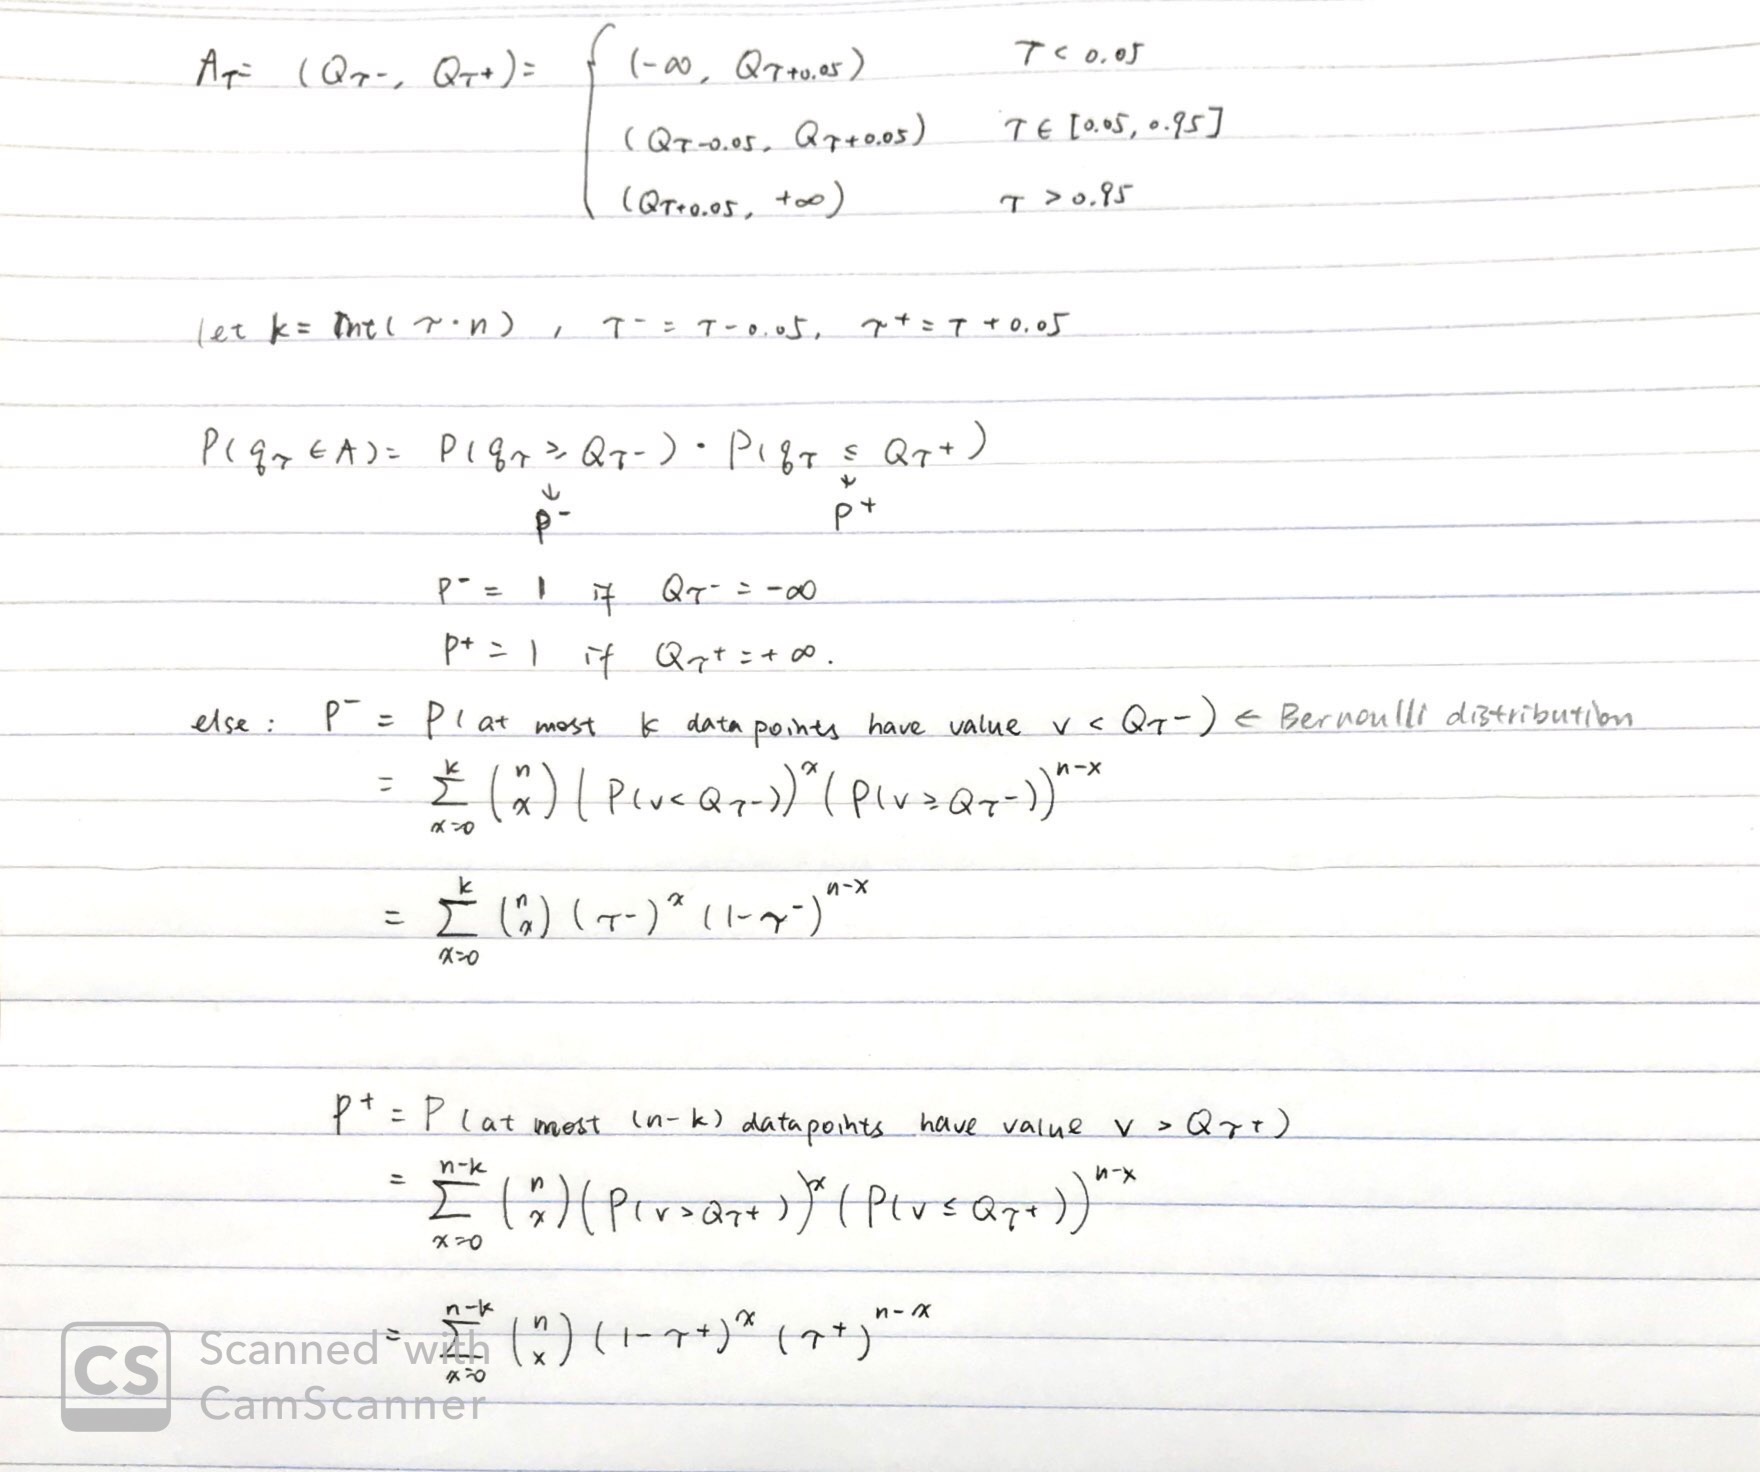 A_τ = (Q_τ-, Q_τ+) = { (-∞, Q_τ+0.05) τ < 0.05
(Q_τ-0.05, Q_τ+0.05) τ ∈ [0.05, 0.95]
(Q_τ+0.05, +∞) τ > 0.95
let k = Int(τ·n), τ⁻ = τ-0.05, τ⁺ = τ+0.05
P(q_τ ∈ A) = P(q_τ ≥ Q_τ-) · P(q_τ ≤ Q_τ+)
↓ ↓
p⁻ p⁺
p⁻ = 1 if Q_τ- = -∞
p⁺ = 1 if Q_τ+ = +∞.
else: p⁻ = P(at most k data points have value v < Q_τ-) ← Bernoulli distribution
= ∑_{x=0}^{k} (n x) (P(v < Q_τ-))^x (P(v ≥ Q_τ-))^{n-x}
= ∑_{x=0}^{k} (n x) (τ⁻)^x (1-τ⁻)^{n-x}
p⁺ = P(at most (n-k) datapoints have value v > Q_τ+)
= ∑_{x=0}^{n-k} (n x) (P(v > Q_τ+))^x (P(v ≤ Q_τ+))^{n-x}
= ∑_{x=0}^{n-k} (n x) (1-τ⁺)^x (τ⁺)^{n-x}
CS Scanned with
CamScanner